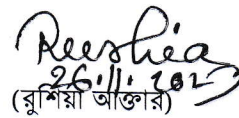 Reeshia
26.11.2023
(রুশিয়া আক্তার)